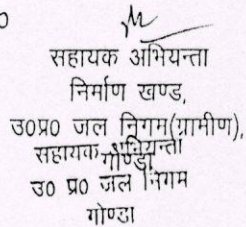 सहायक अभियन्ता
निर्माण खण्ड,
उ0प्र0 जल निगम(ग्रामीण),
गोण्डा
सहायक अभियन्ता
उ0 प्र0 जल निगम
गोण्डा